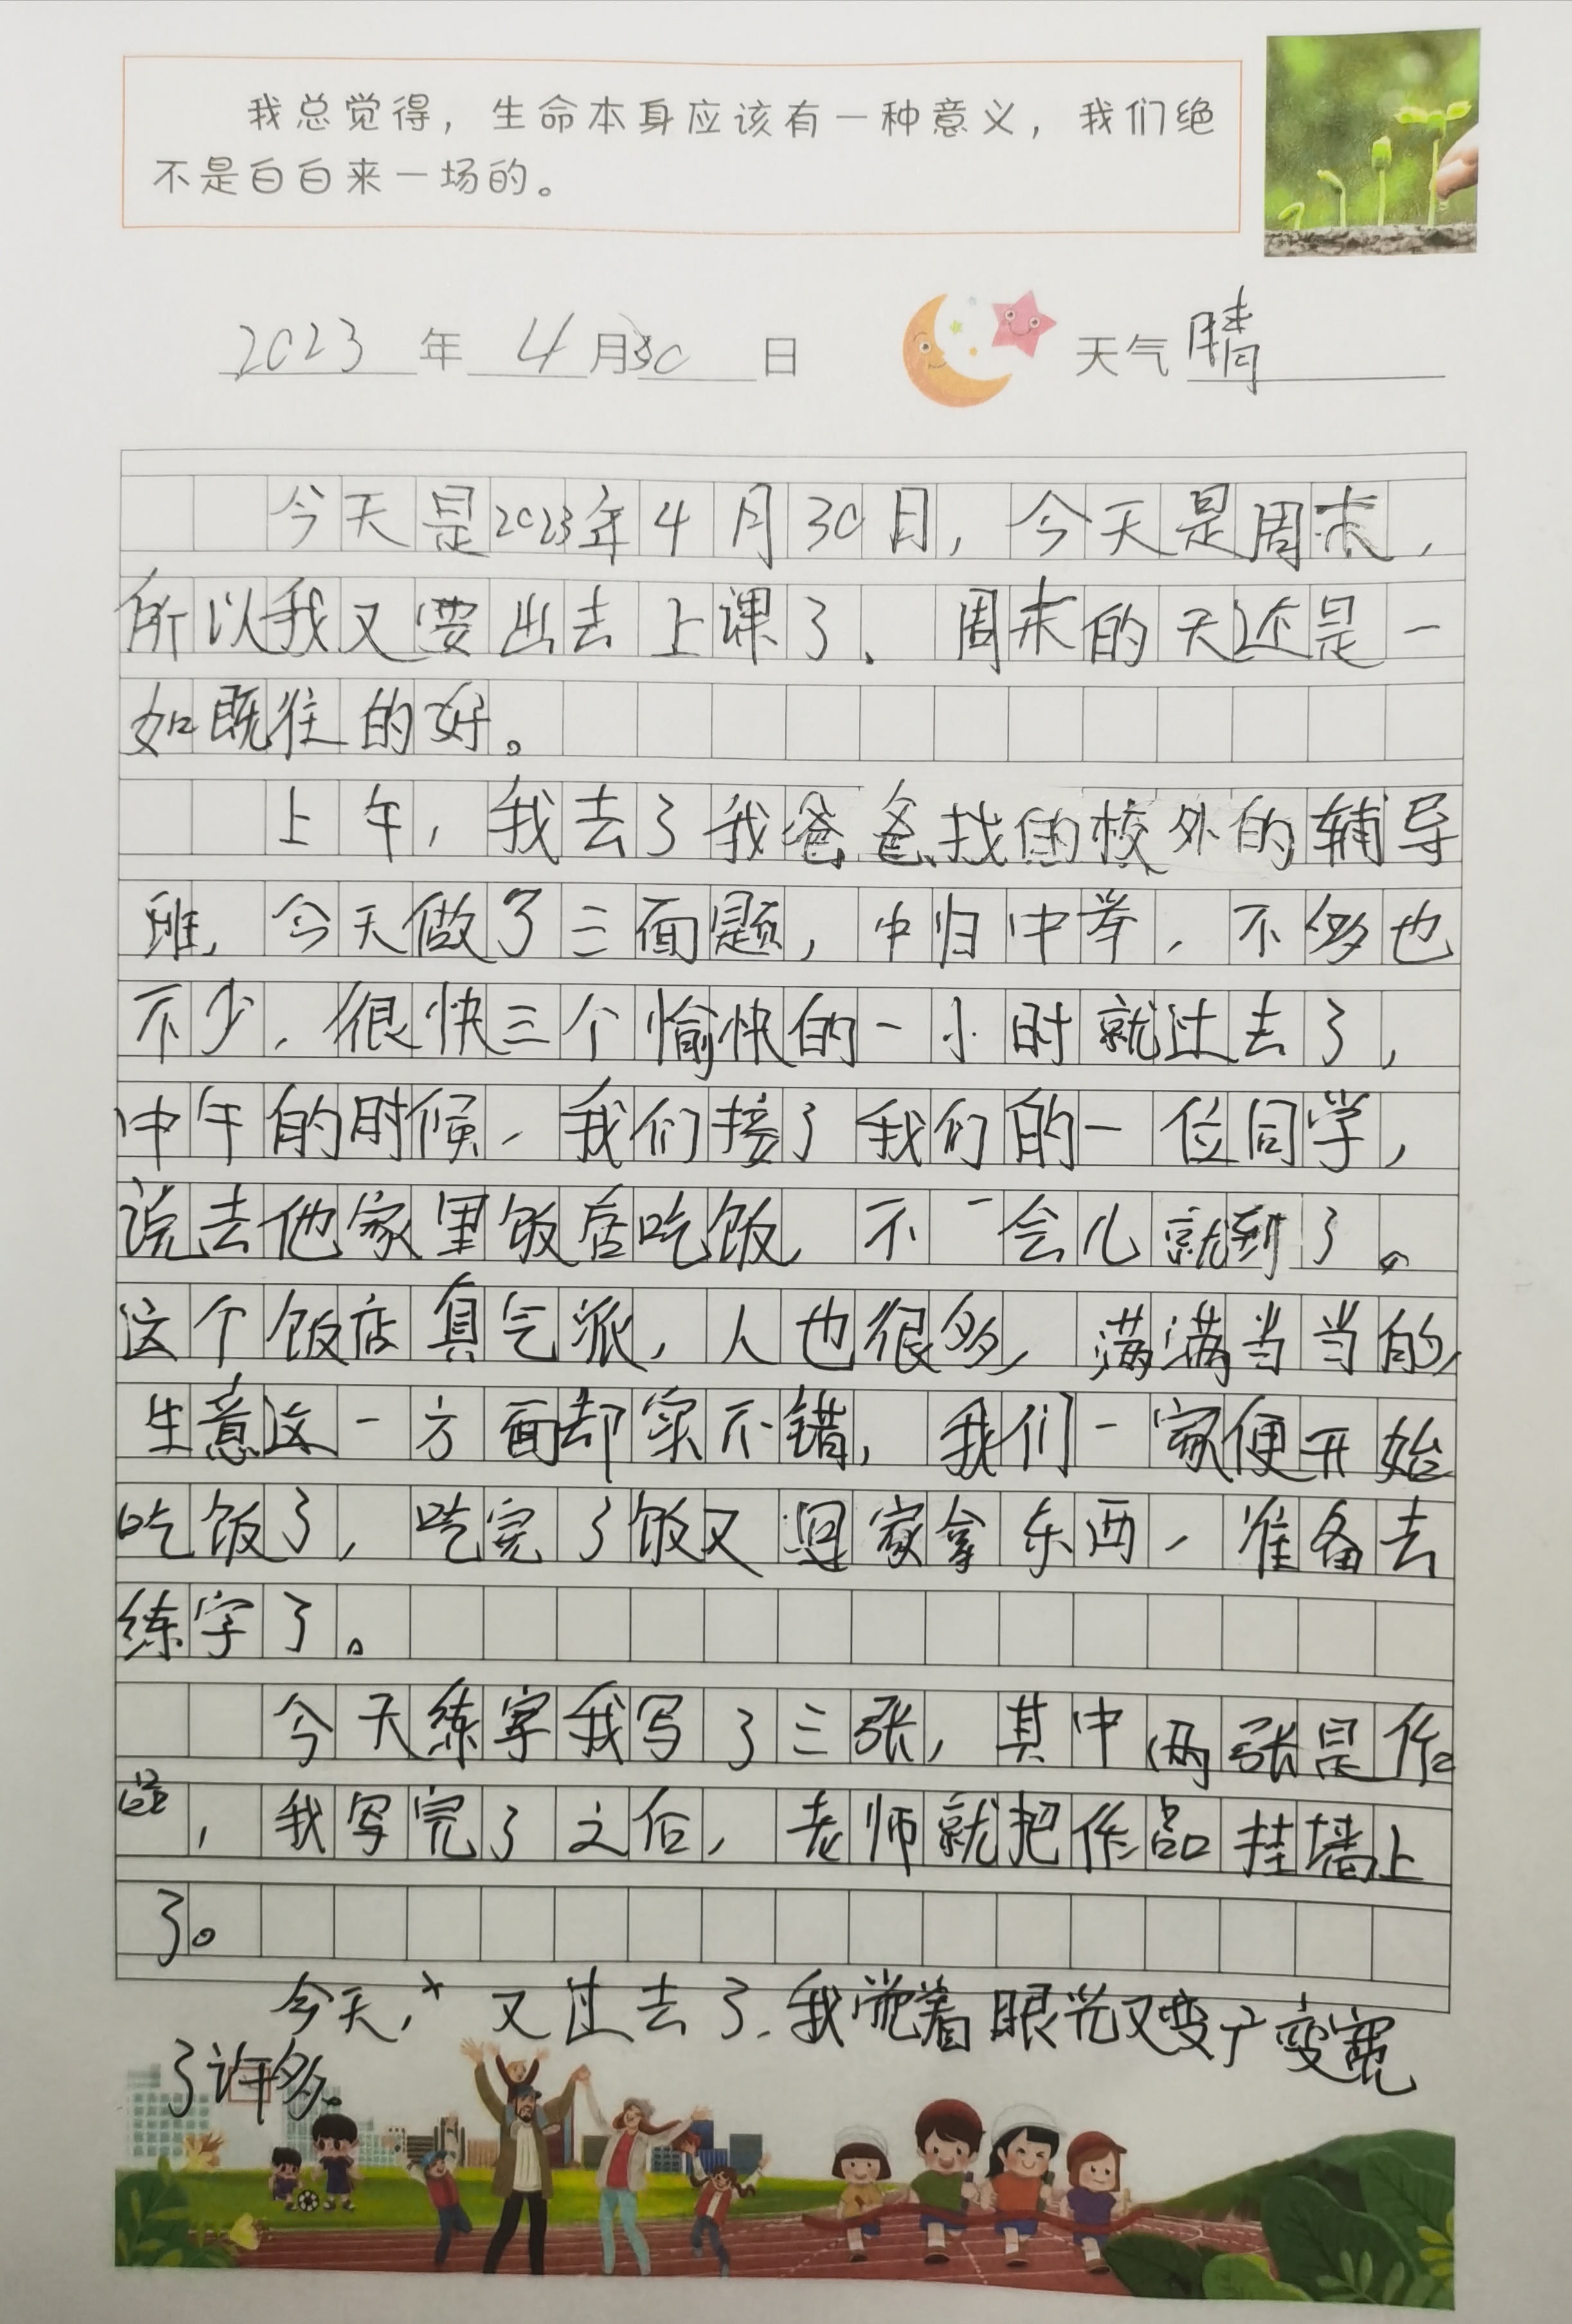 我总觉得，生命本身应该有一种意义，我们绝
不是白白来一场的。
2023年4月30日 天气晴
今天是2023年4月30日，今天是周末，
所以我又要出去上课了、周末的天还是一
如既往的好。
上午，我去了我爸爸找的校外的辅导
班，今天做了三面题，中归中举，不多也
不少，很快三个愉快的一小时就过去了，
中午的时候、我们接了我们的一位同学，
说去他家里饭店吃饭，不一会儿就到了。
这个饭店真气派，人也很多，满满当当的，
生意这一方面却实不错，我们一家便开始
吃饭了，吃完了饭又回家拿东西，准备去
练字了。
今天练字我写了三张，其中两张是作
品，我写完了之后，老师就把作品挂墙上
了。
今天，又过去了，我觉着眼光又变广变宽
了许多。